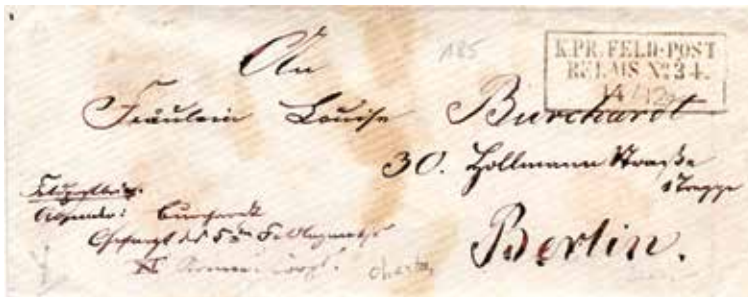 185
K.PR.FELD-POST
RELAIS Nº 34.
14/12
An
Fräulein Louise Burchardt
30. Hollmann Straße
1 Treppe
Berlin.
Feldpostbrief.
Absender: Burchardt
Chefarzt des 5ten Feldlazareths
XI Armee Corps.